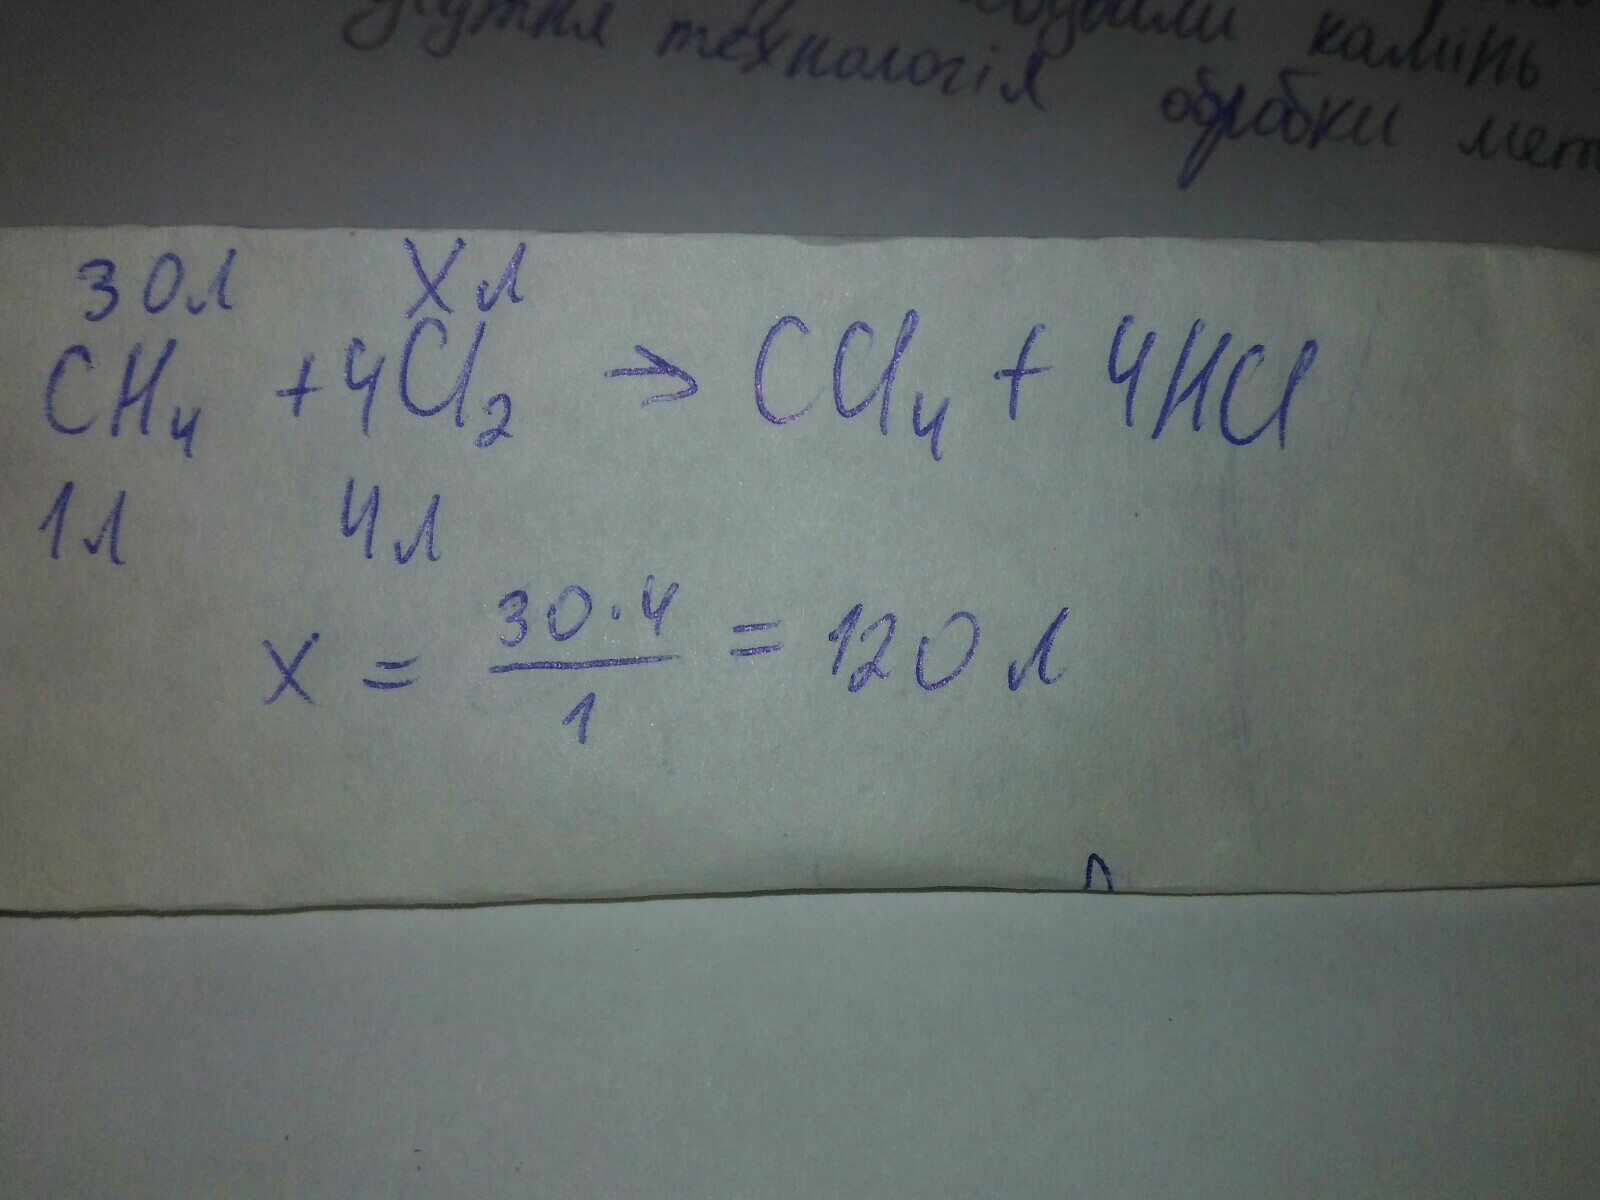 камінь
технологія обробки
30л хл
CH4 + 4Cl2 → CCl4 + 4HCl
1л 4л
x = 30·4 / 1 = 120 л